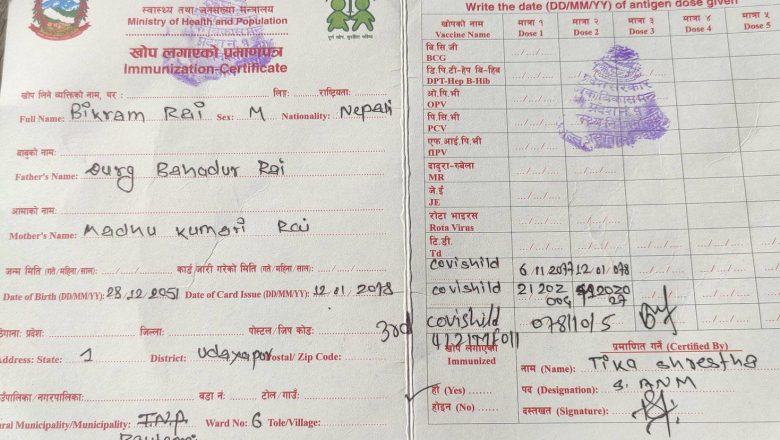 स्वास्थ्य तथा जनसंख्या मन्त्रालय
Ministry of Health and Population
खोप लगाएको प्रमाणपत्र
Immunization-Certificate
पूर्ण खोप, सुरक्षित भविष्य
खोप लिने व्यक्तिको नाम, थर : लिङ्ग: राष्ट्रियता:
Full Name: Bikram Rai Sex: M Nationality: Nepali
बाबुको नाम:
Father's Name: Durg Bahadur Rai
आमाको नाम:
Mother's Name: Madhu Kumari Rai
जन्म मिति (गते/महिना/साल): कार्ड जारी गरेको मिति (गते/महिना/साल):
Date of Birth (DD/MM/YY): 28.12.2051 Date of Card Issue (DD/MM/YY): 12.01.2078
ठेगाना: प्रदेश: जिल्ला: पोस्टल/जिप कोड:
Address: State: 1 District: Udayapur Postal/ Zip Code:
गाउँपालिका/नगरपालिका: वडा नं: टोल/गाउँ:
Rural Municipality/Municipality: Ward No: 6 Tole/Village:
Write the date (DD/MM/YY) of antigen dose given
खोपको नाम मात्रा १ मात्रा २ मात्रा ३ मात्रा ४ मात्रा ५
Vaccine Name Dose 1 Dose 2 Dose 3 Dose 4 Dose 5
बि.सि.जी
BCG
डि.पि.टी-हेप बि-हिब
DPT-Hep B-Hib
ओ.पि.भी
OPV
पि.सि.भी
PCV
एफ.आई.पि.भी
fIPV
दादुरा-रुबेला
MR
जे.ई
JE
रोटा भाइरस
Rota Virus
टि.डी.
Td
covishild 6.11.2077 12.01.078
covishild
3rd covishild 078/10/5
खोप लगाएको
Immunized
हो (Yes)
होइन (No)
प्रमाणित गर्ने (Certified By)
नाम (Name): Tika Shrestha
पद (Designation): S. ANM
दस्तखत (Signature):